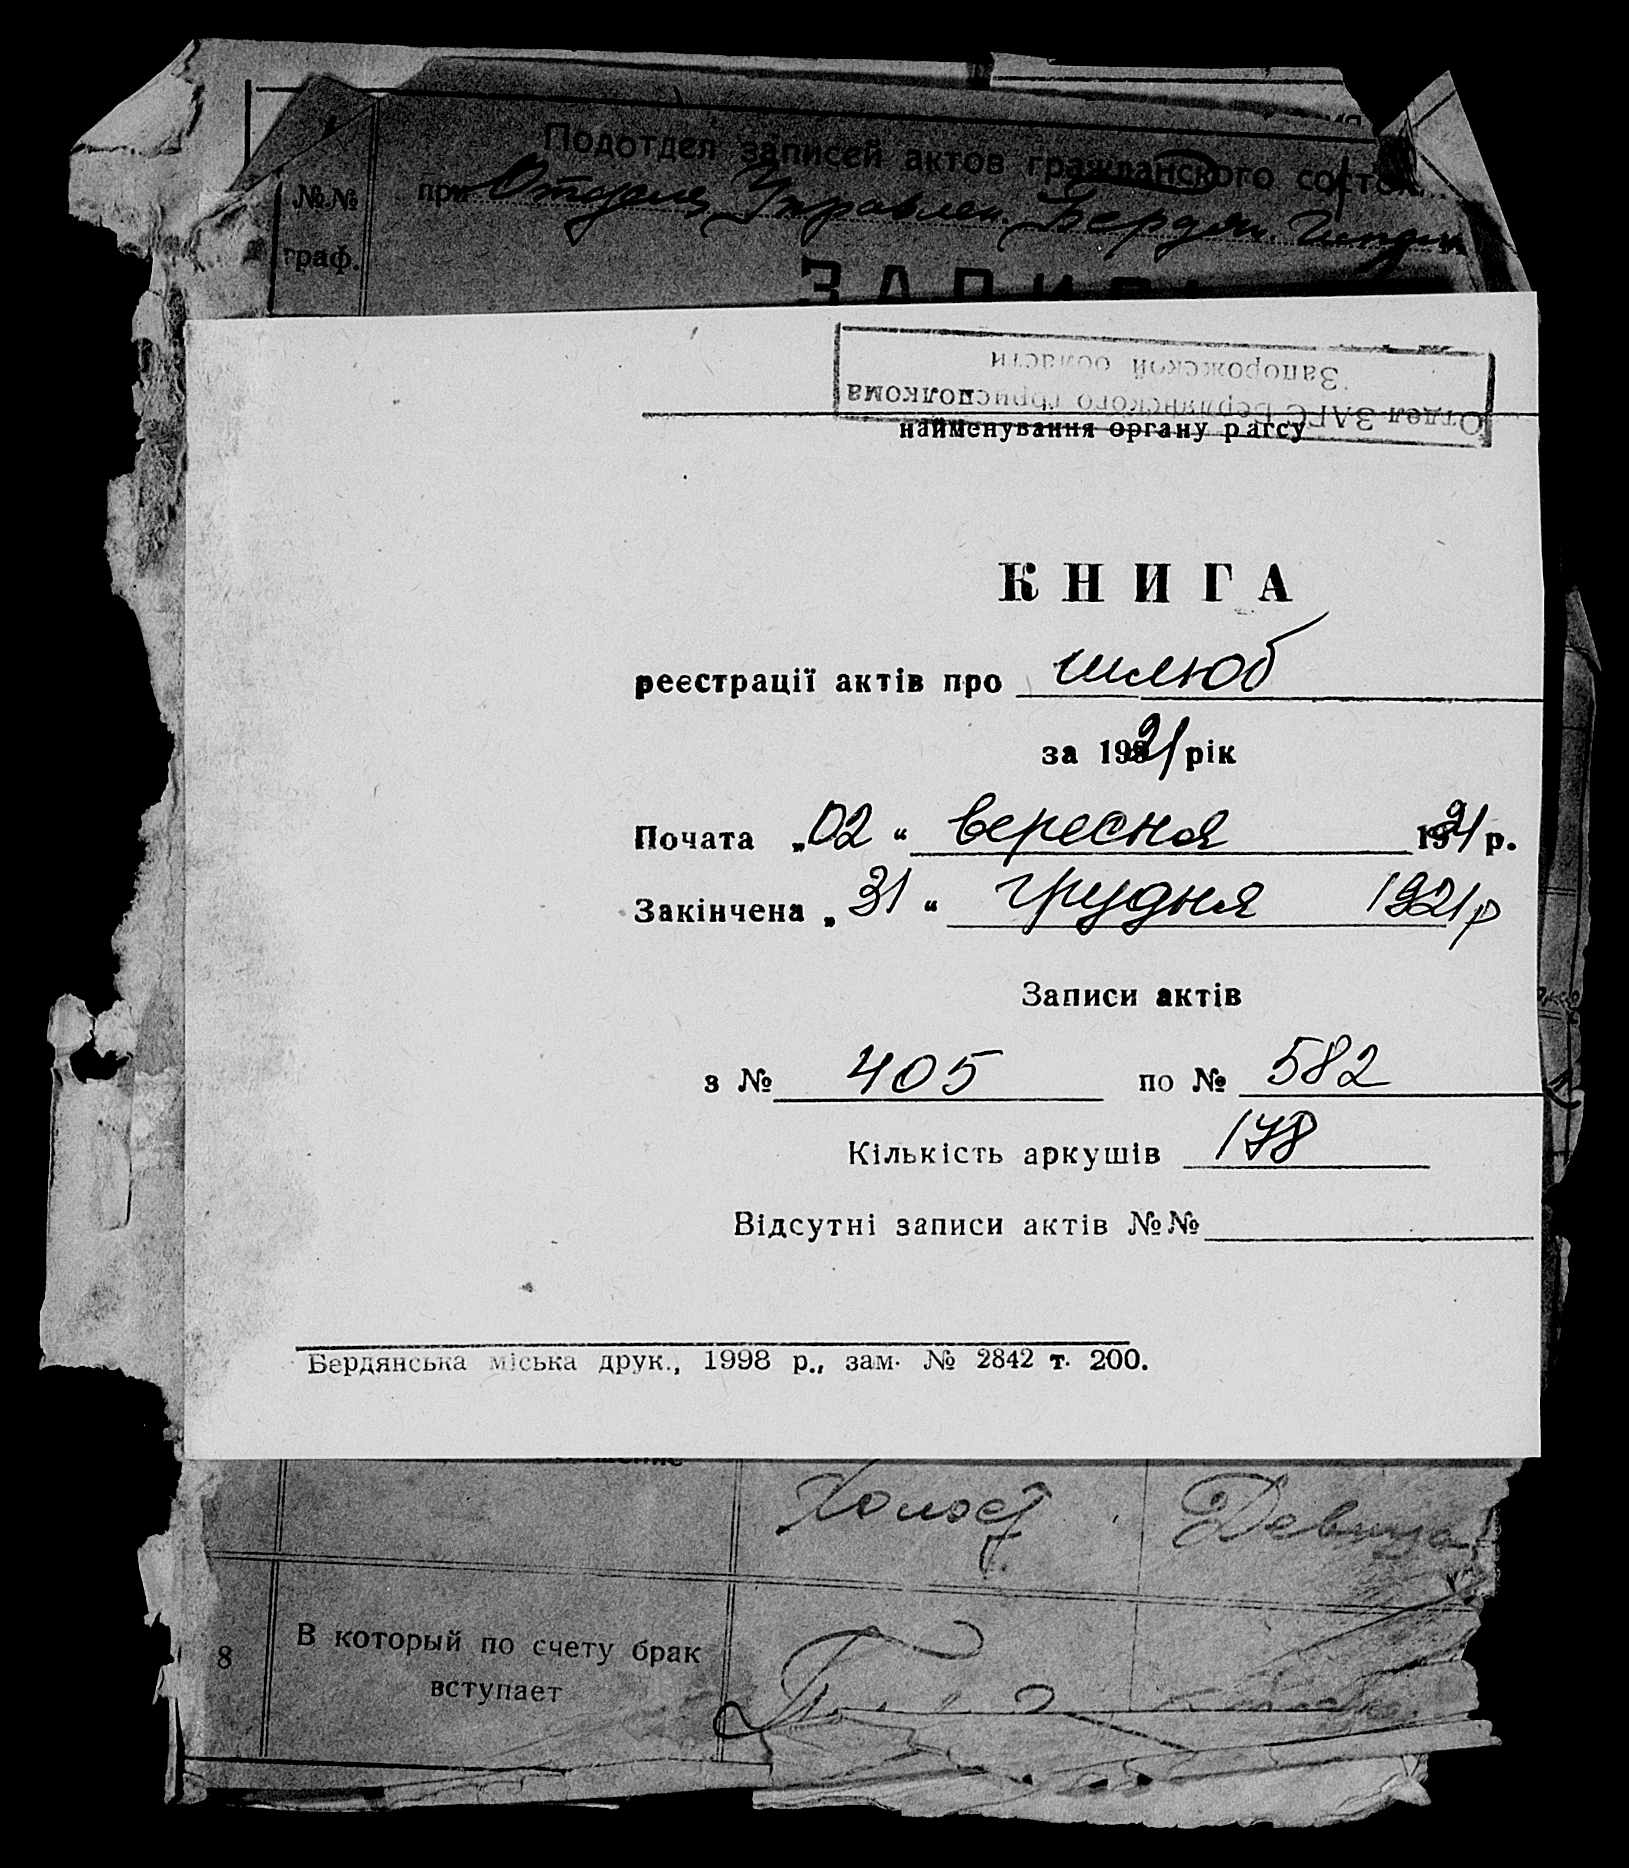 Подотдел записей актов гражданского
№№ при Отделе Управлен. Бердян.
граф.
ЗАПИС
Отдел ЗАГС Бердянского горисполкома
Запорожской области
найменування органу рагсу
КНИГА
реєстрації актів про шлюб
за 1921 рік
Почата „02“ вересня 1921 р.
Закінчена „31“ грудня 1921 р
Записи актів
з № 405 по № 582
Кількість аркушів 178
Відсутні записи актів №№
Бердянська міська друк., 1998 р., зам. № 2842 т. 200.
Холост Девица
8 В который по счету брак
вступает